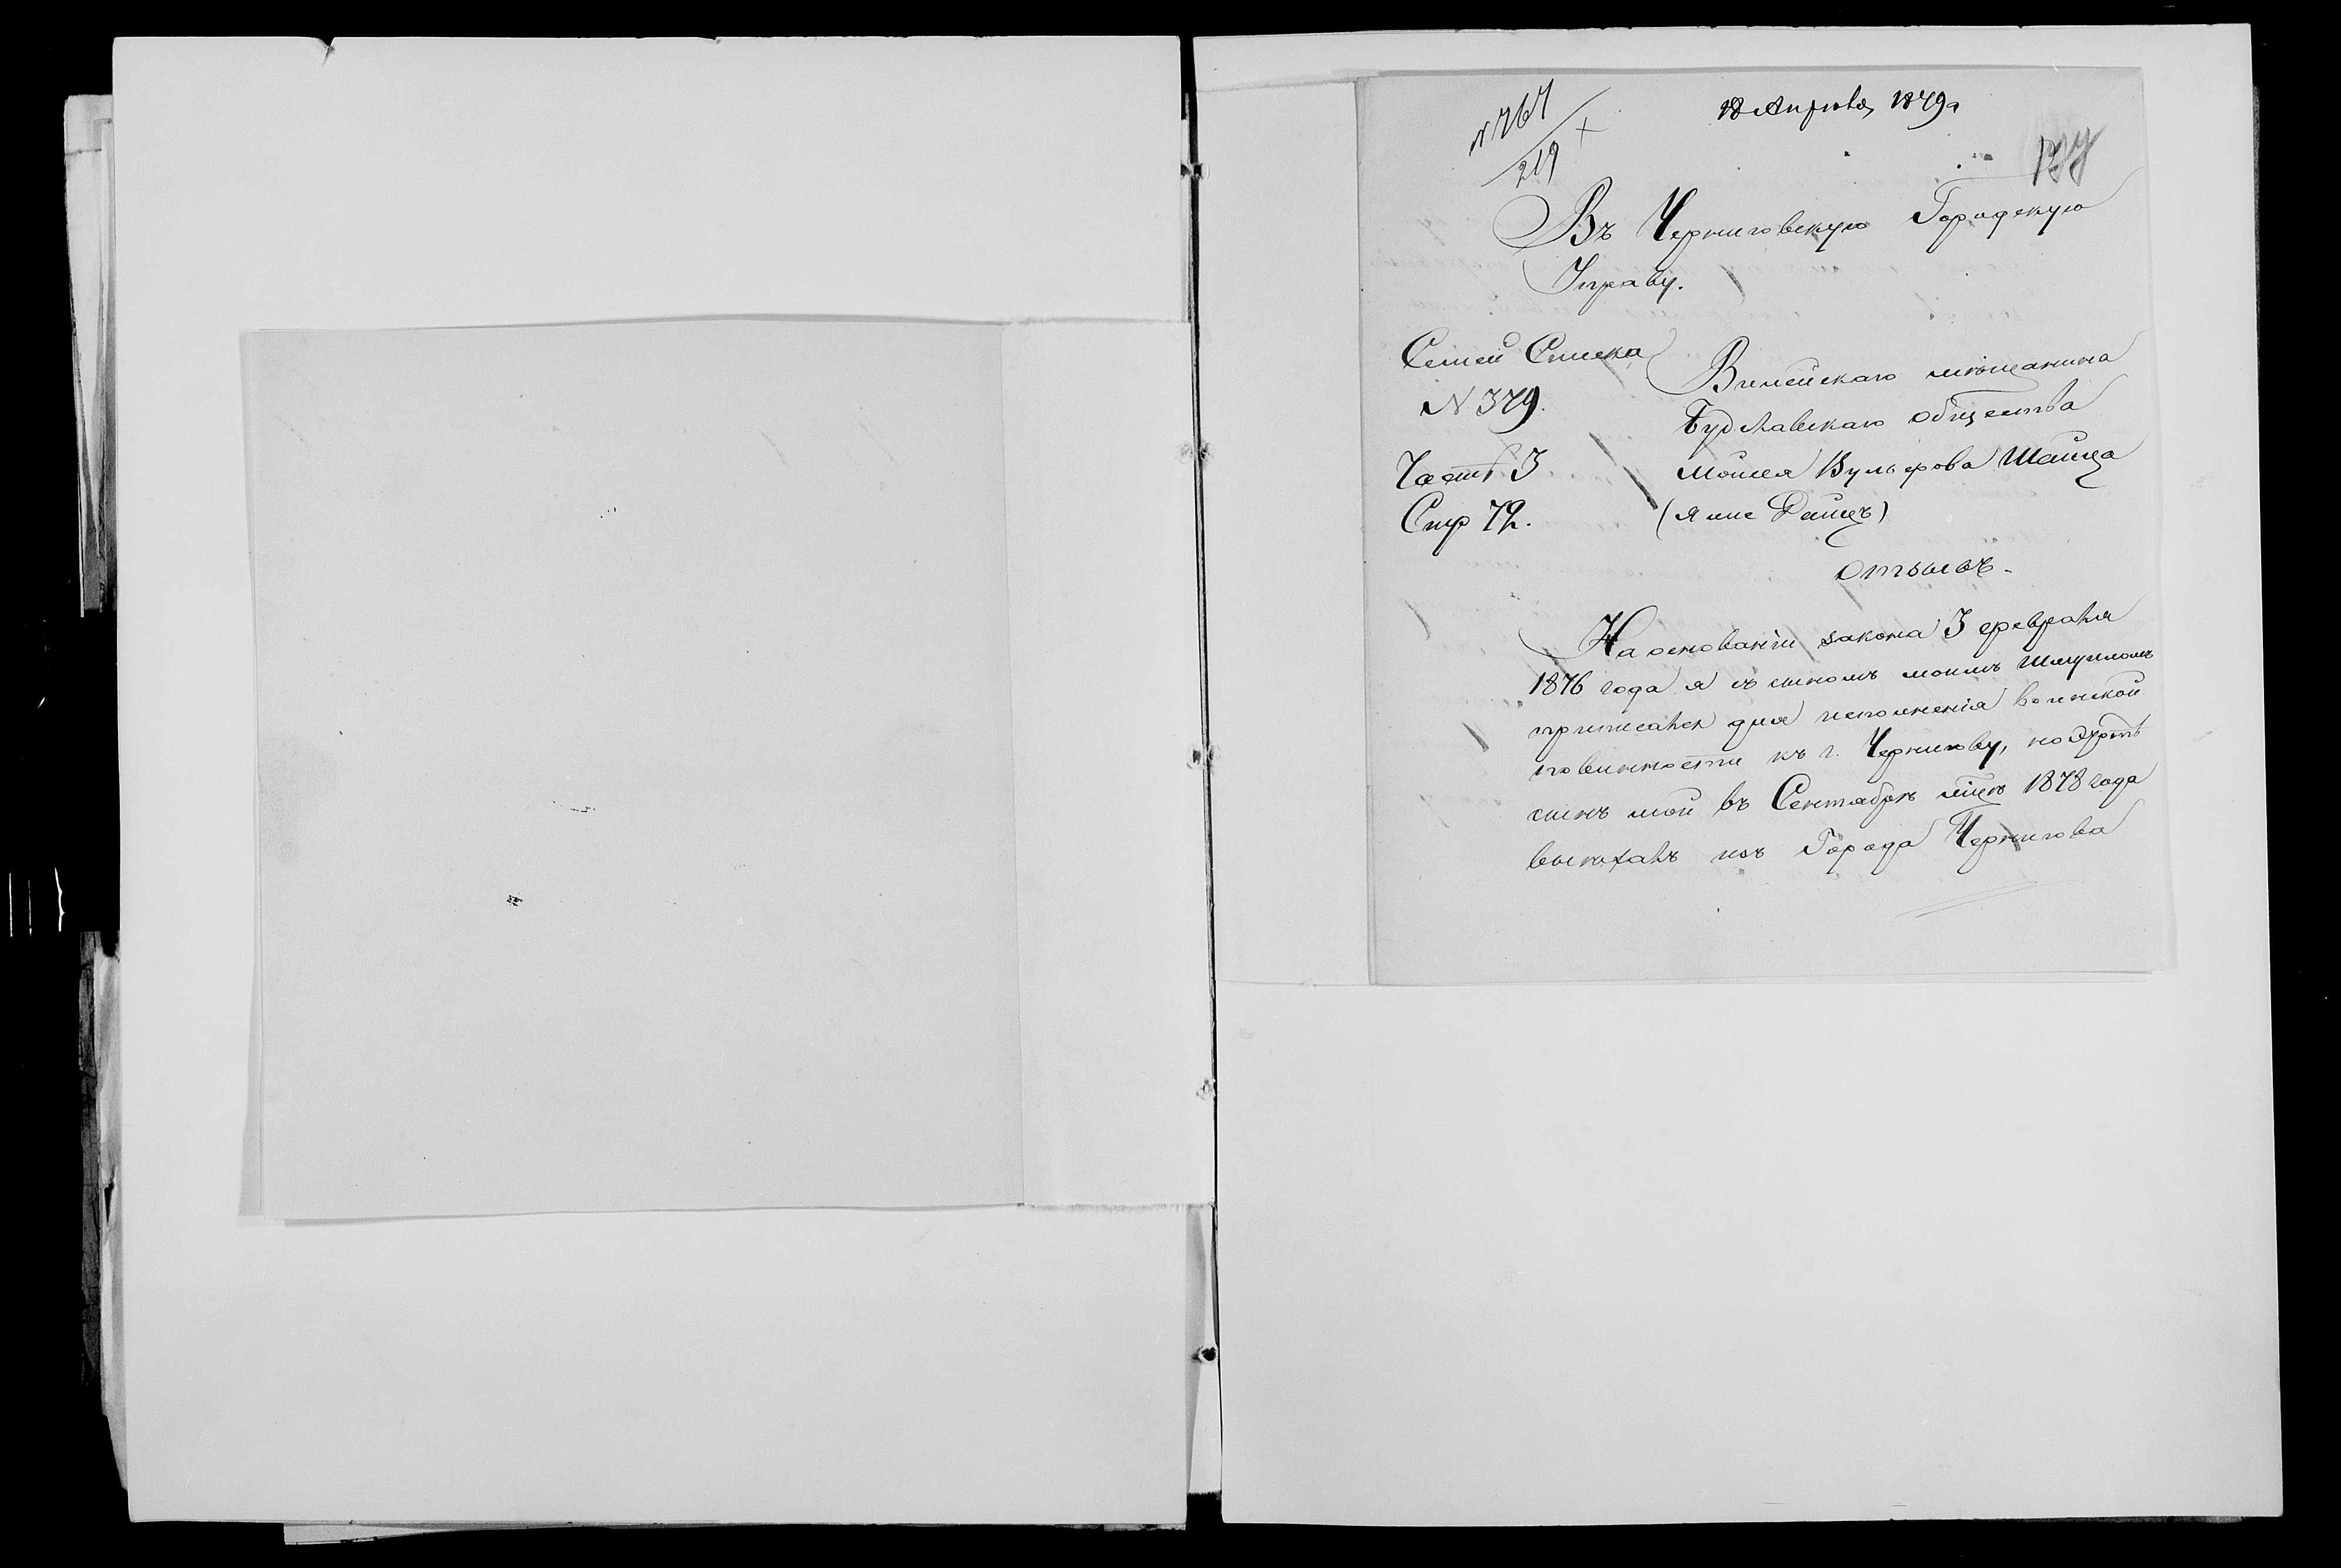 18 Апрѣля 1879 г
N 767
219
Въ Черниговскую Городскую
Управу.
Семей Списка
N 379.
Часть 3
Стр 72.
Вилейскаго мѣщанина
Будславскаго общества
Мойшея Вульфова Шайца
(я же Дайцъ)
Отзывъ.
На основаніи закона 3 февраля
1876 года я съ сыномъ моимъ Шмуиломъ
приписался для исполненія воинской
повинности къ г. Чернигову, но
сынъ мой въ Сентябрѣ мцѣ 1878 года
выѣхалъ изъ Города Чернигова